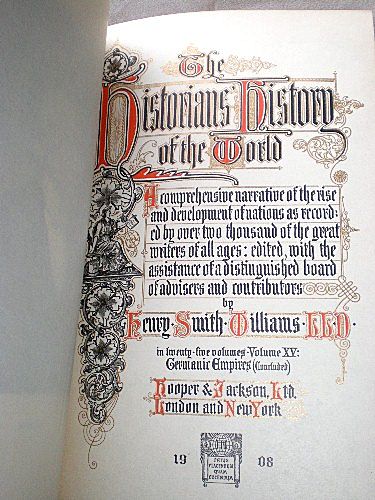 The
Historians' History
of the World
A comprehensive narrative of the rise
and development of nations as record-
ed by over two thousand of the great
writers of all ages: edited, with the
assistance of a distinguished board
of advisers and contributors
by
Henry Smith Williams LLD.
in twenty-five volumes · Volume XV:
Germanic Empires (Concluded)
Hooper & Jackson, Ltd.
London and New York
PRIUS
PLACENDUM
QUAM
DOCENDUM
1908